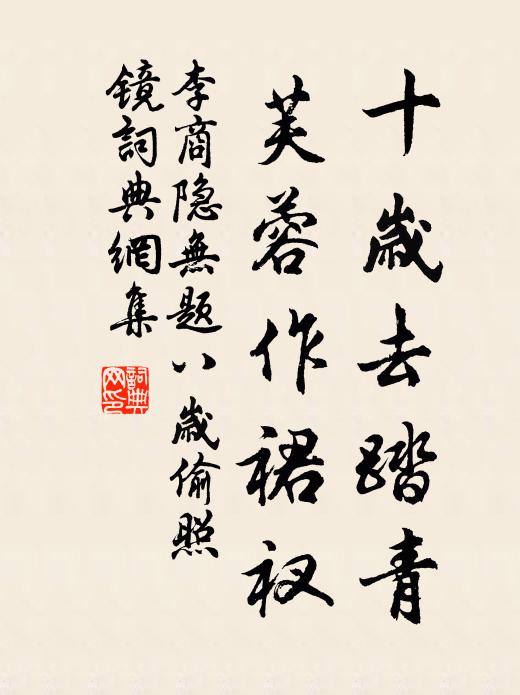 十歳去踏青
芙蓉作裙衩
李商隐無題八歳偷照
鏡詞典網集
詞典网印